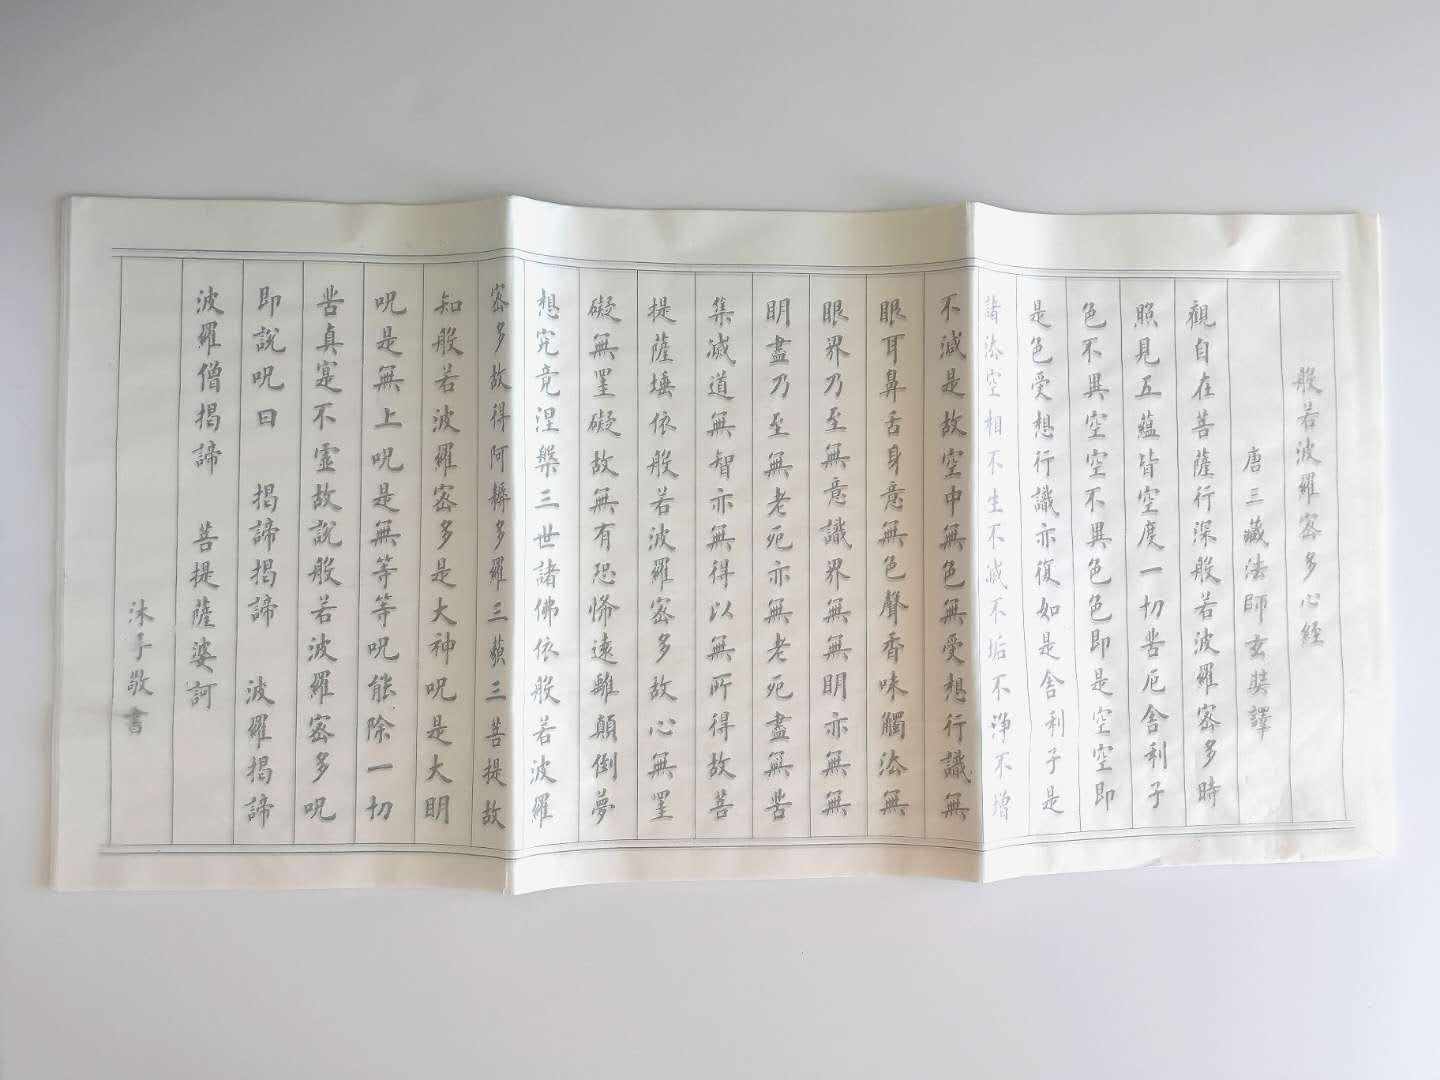 般若波羅密多心經
唐三藏法師玄奘譯
觀自在菩薩行深般若波羅密多時
照見五蘊皆空度一切苦厄舍利子
色不異空空不異色色即是空空即
是色受想行識亦復如是舍利子是
諸法空相不生不滅不垢不淨不增
不減是故空中無色無受想行識無
眼耳鼻舌身意無色聲香味觸法無
眼界乃至無意識界無無明亦無無
明盡乃至無老死亦無老死盡無苦
集滅道無智亦無得以無所得故菩
提薩埵依般若波羅密多故心無罣
礙無罣礙故無有恐怖遠離顛倒夢
想究竟涅槃三世諸佛依般若波羅
密多故得阿耨多羅三藐三菩提故
知般若波羅密多是大神呪是大明
呪是無上呪是無等等呪能除一切
苦真寔不虛故說般若波羅密多呪
即說呪曰 揭諦揭諦 波羅揭諦
波羅僧揭諦 菩提薩婆訶
沐手敬書